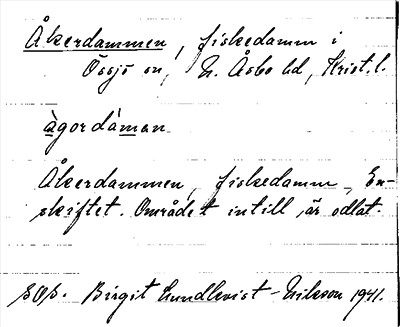 Åkerdammen, fiskedamm i
Össjö sn, N. Åsbo hd, Krist. l.
àgordàman
Åkerdammen, fiskedamm, En-
skiftet. Området intill är odlat.
SOS. Birgit Lundkvist-Nilsson 1941.